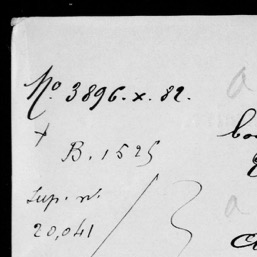 No. 3896.x.82.
B. 1525
Sup. n.
20,041